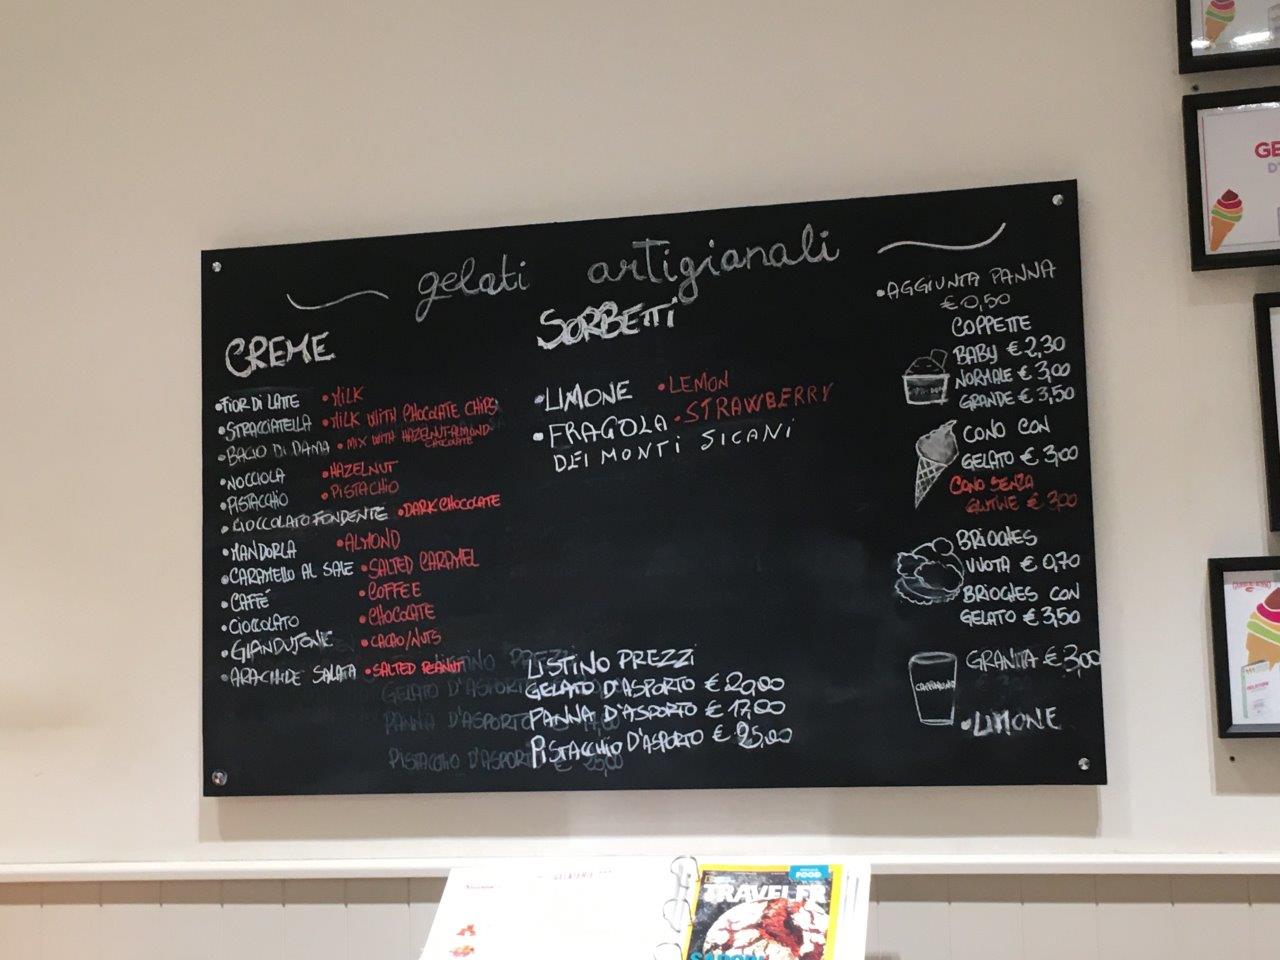 gelati artigianali
CREME
•FIOR DI LATTE •MILK
•STRACCIATELLA •MILK WITH CHOCOLATE CHIPS
•BACIO DI DAMA •MIX WITH HAZELNUT-ALMOND
CHOCOLATE
•NOCCIOLA •HAZELNUT
•PISTACCHIO •PISTACHIO
•CIOCCOLATO FONDENTE •DARK CHOCOLATE
•MANDORLA •ALMOND
•CARAMELLO AL SALE •SALTED CARAMEL
•CAFFÉ •COFFEE
•CIOCCOLATO •CHOCOLATE
•GIANDUIONE •CACAO/NUTS
•ARACHIDE SALATA •SALTED PEANUT
SORBETTI
•LIMONE •LEMON
•FRAGOLA •STRAWBERRY
DEI MONTI SICANI
LISTINO PREZZI
GELATO D'ASPORTO € 20,00
PANNA D'ASPORTO € 17,00
PISTACCHIO D'ASPORTO € 25,00
LISTINO PREZZI
GELATO D'ASPORTO
PANNA D'ASPORTO 17,00
PISTACCHIO D'ASPORTO € 25,00
•AGGIUNTA PANNA
€ 0,50
COPPETTE
BABY € 2,30
NORMALE € 3,00
GRANDE € 3,50
CONO CON
GELATO € 3,00
CONO SENZA
GLUTINE € 3,00
BRIOCHES
VUOTA € 0,70
BRIOCHES CON
GELATO € 3,50
GRANITA € 3,00
•LIMONE
GE
TRAVELER
FOOD